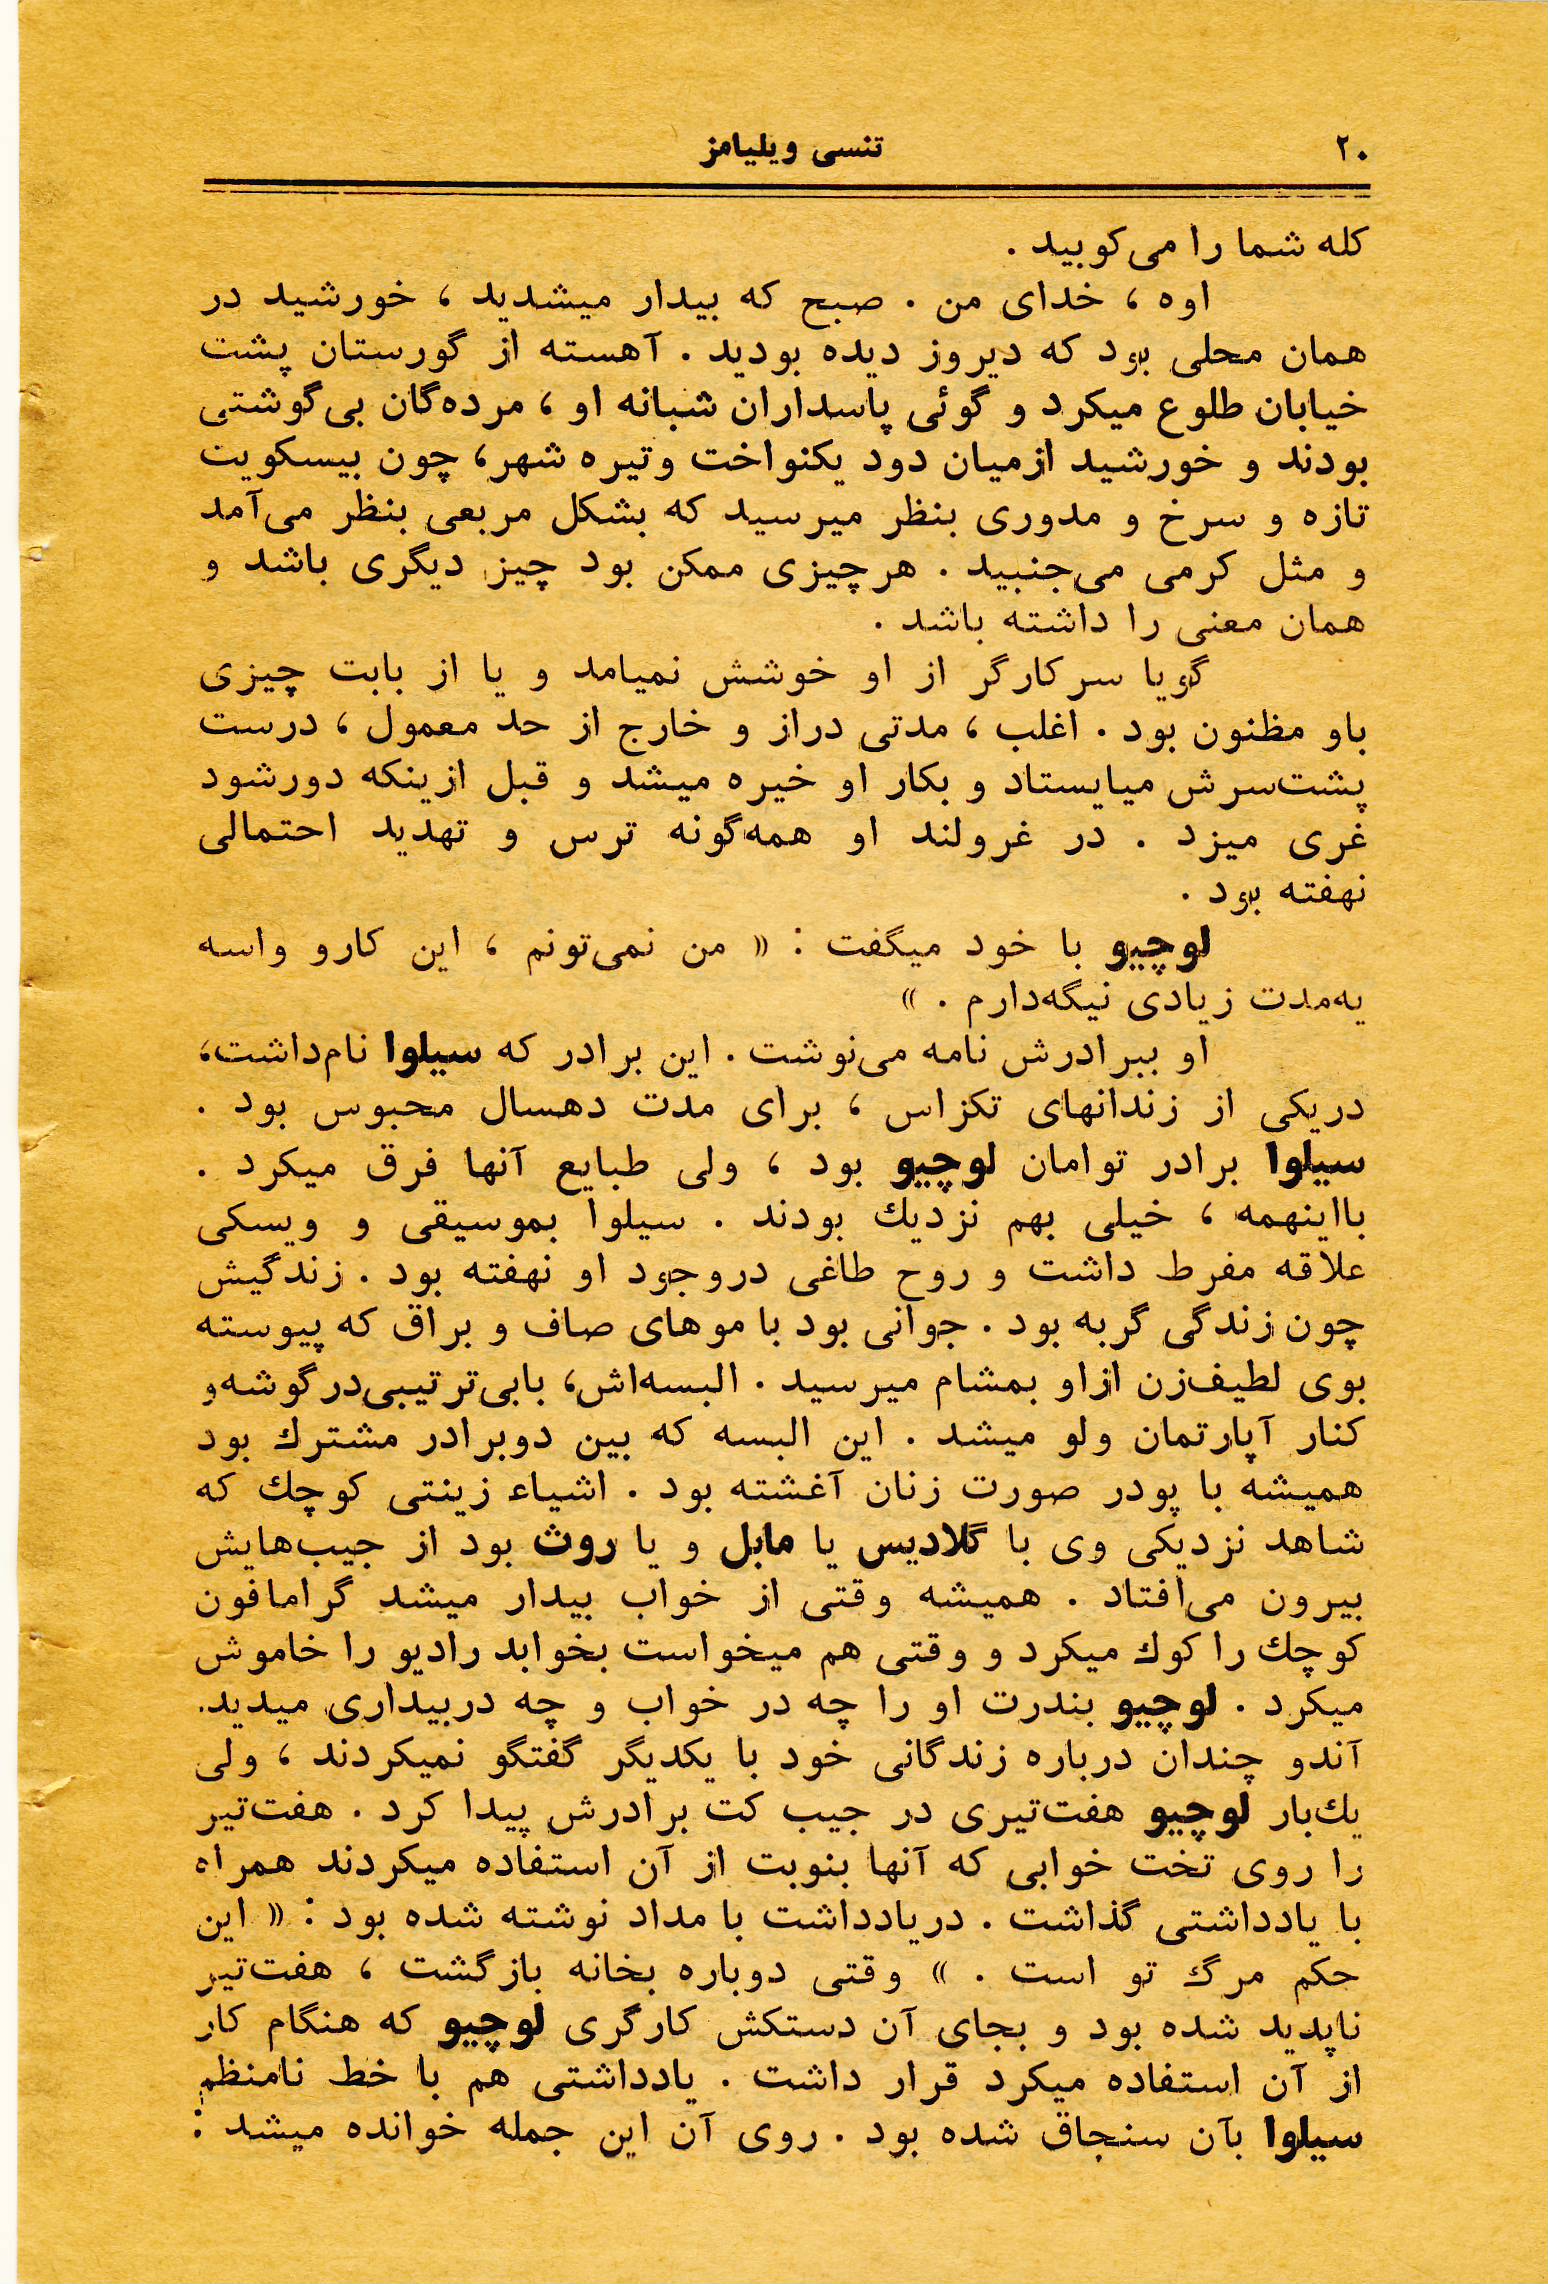 ۲۰
تنسی ویلیامز
کله شما را می‌کوبید .
اوه ، خدای من . صبح که بیدار میشدید ، خورشید در
همان محلی بود که دیروز دیده بودید . آهسته از گورستان پشت
خیابان طلوع میکرد و گوئی پاسداران شبانه او ، مرده‌گان بی‌گوشتی
بودند و خورشید ازمیان دود یکنواخت وتیره شهر، چون بیسکویت
تازه و سرخ و مدوری بنظر میرسید که بشکل مربعی بنظر می‌آمد
و مثل کرمی می‌جنبید . هرچیزی ممکن بود چیز دیگری باشد و
همان معنی را داشته باشد .
گویا سرکارگر از او خوشش نمیامد و یا از بابت چیزی
باو مظنون بود . اغلب ، مدتی دراز و خارج از حد معمول ، درست
پشت‌سرش میایستاد و بکار او خیره میشد و قبل ازینکه دورشود
غری میزد . در غرولند او همه‌گونه ترس و تهدید احتمالی
نهفته بود .
لوچیو با خود میگفت : « من نمی‌تونم ، این کارو واسه
یه‌مدت زیادی نیگه‌دارم . »
او ببرادرش نامه می‌نوشت . این برادر که سیلوا نام‌داشت،
دریکی از زندانهای تکزاس ، برای مدت دهسال محبوس بود .
سیلوا برادر توامان لوچیو بود ، ولی طبایع آنها فرق میکرد .
بااینهمه ، خیلی بهم نزدیك بودند . سیلوا بموسیقی و ویسکی
علاقه مفرط داشت و روح طاغی دروجود او نهفته بود . زندگیش
چون زندگی گربه بود . جوانی بود با موهای صاف و براق که پیوسته
بوی لطیف‌زن ازاو بمشام میرسید . البسه‌اش، بابی‌ترتیبی‌درگوشه‌و
کنار آپارتمان ولو میشد . این البسه که بین دوبرادر مشترك بود
همیشه با پودر صورت زنان آغشته بود . اشیاء زینتی کوچك که
شاهد نزدیکی وی با گلادیس یا مابل و یا روث بود از جیب‌هایش
بیرون می‌افتاد . همیشه وقتی از خواب بیدار میشد گرامافون
کوچك را کوك میکرد و وقتی هم میخواست بخوابد رادیو را خاموش
میکرد . لوچیو بندرت او را چه در خواب و چه دربیداری میدید.
آندو چندان درباره زندگانی خود با یکدیگر گفتگو نمیکردند ، ولی
یك‌بار لوچیو هفت‌تیری در جیب کت برادرش پیدا کرد . هفت‌تیر
را روی تخت خوابی که آنها بنوبت از آن استفاده میکردند همراه
با یادداشتی گذاشت . دریادداشت با مداد نوشته شده بود : « این
حکم مرگ تو است . » وقتی دوباره بخانه بازگشت ، هفت‌تیر
ناپدید شده بود و بجای آن دستکش کارگری لوچیو که هنگام کار
از آن استفاده میکرد قرار داشت . یادداشتی هم با خط نامنظم
سیلوا بآن سنجاق شده بود . روی آن این جمله خوانده میشد :